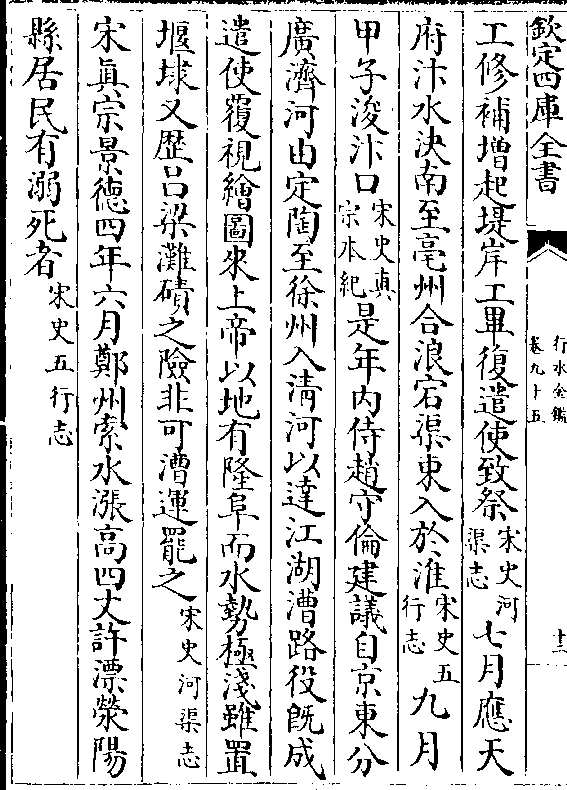 欽定四庫全書
行水金鑑
卷九十五
十二
工修補增起堤岸工畢復遣使致祭宋史河渠志七月應天
府汴水決南至亳州合浪宕渠東入於淮宋史五行志九月
甲子浚汴口宋史真宗本紀是年內侍趙守倫建議自京東分
廣濟河由定陶至徐州入清河以達江湖漕路役既成
遣使覆視繪圖來上帝以地有隆阜而水勢極淺雖置
堰埭又歷呂梁灘磧之險非可漕運罷之宋史河渠志
宋真宗景德四年六月鄭州索水漲高四丈許漂滎陽
縣居民有溺死者宋史五行志